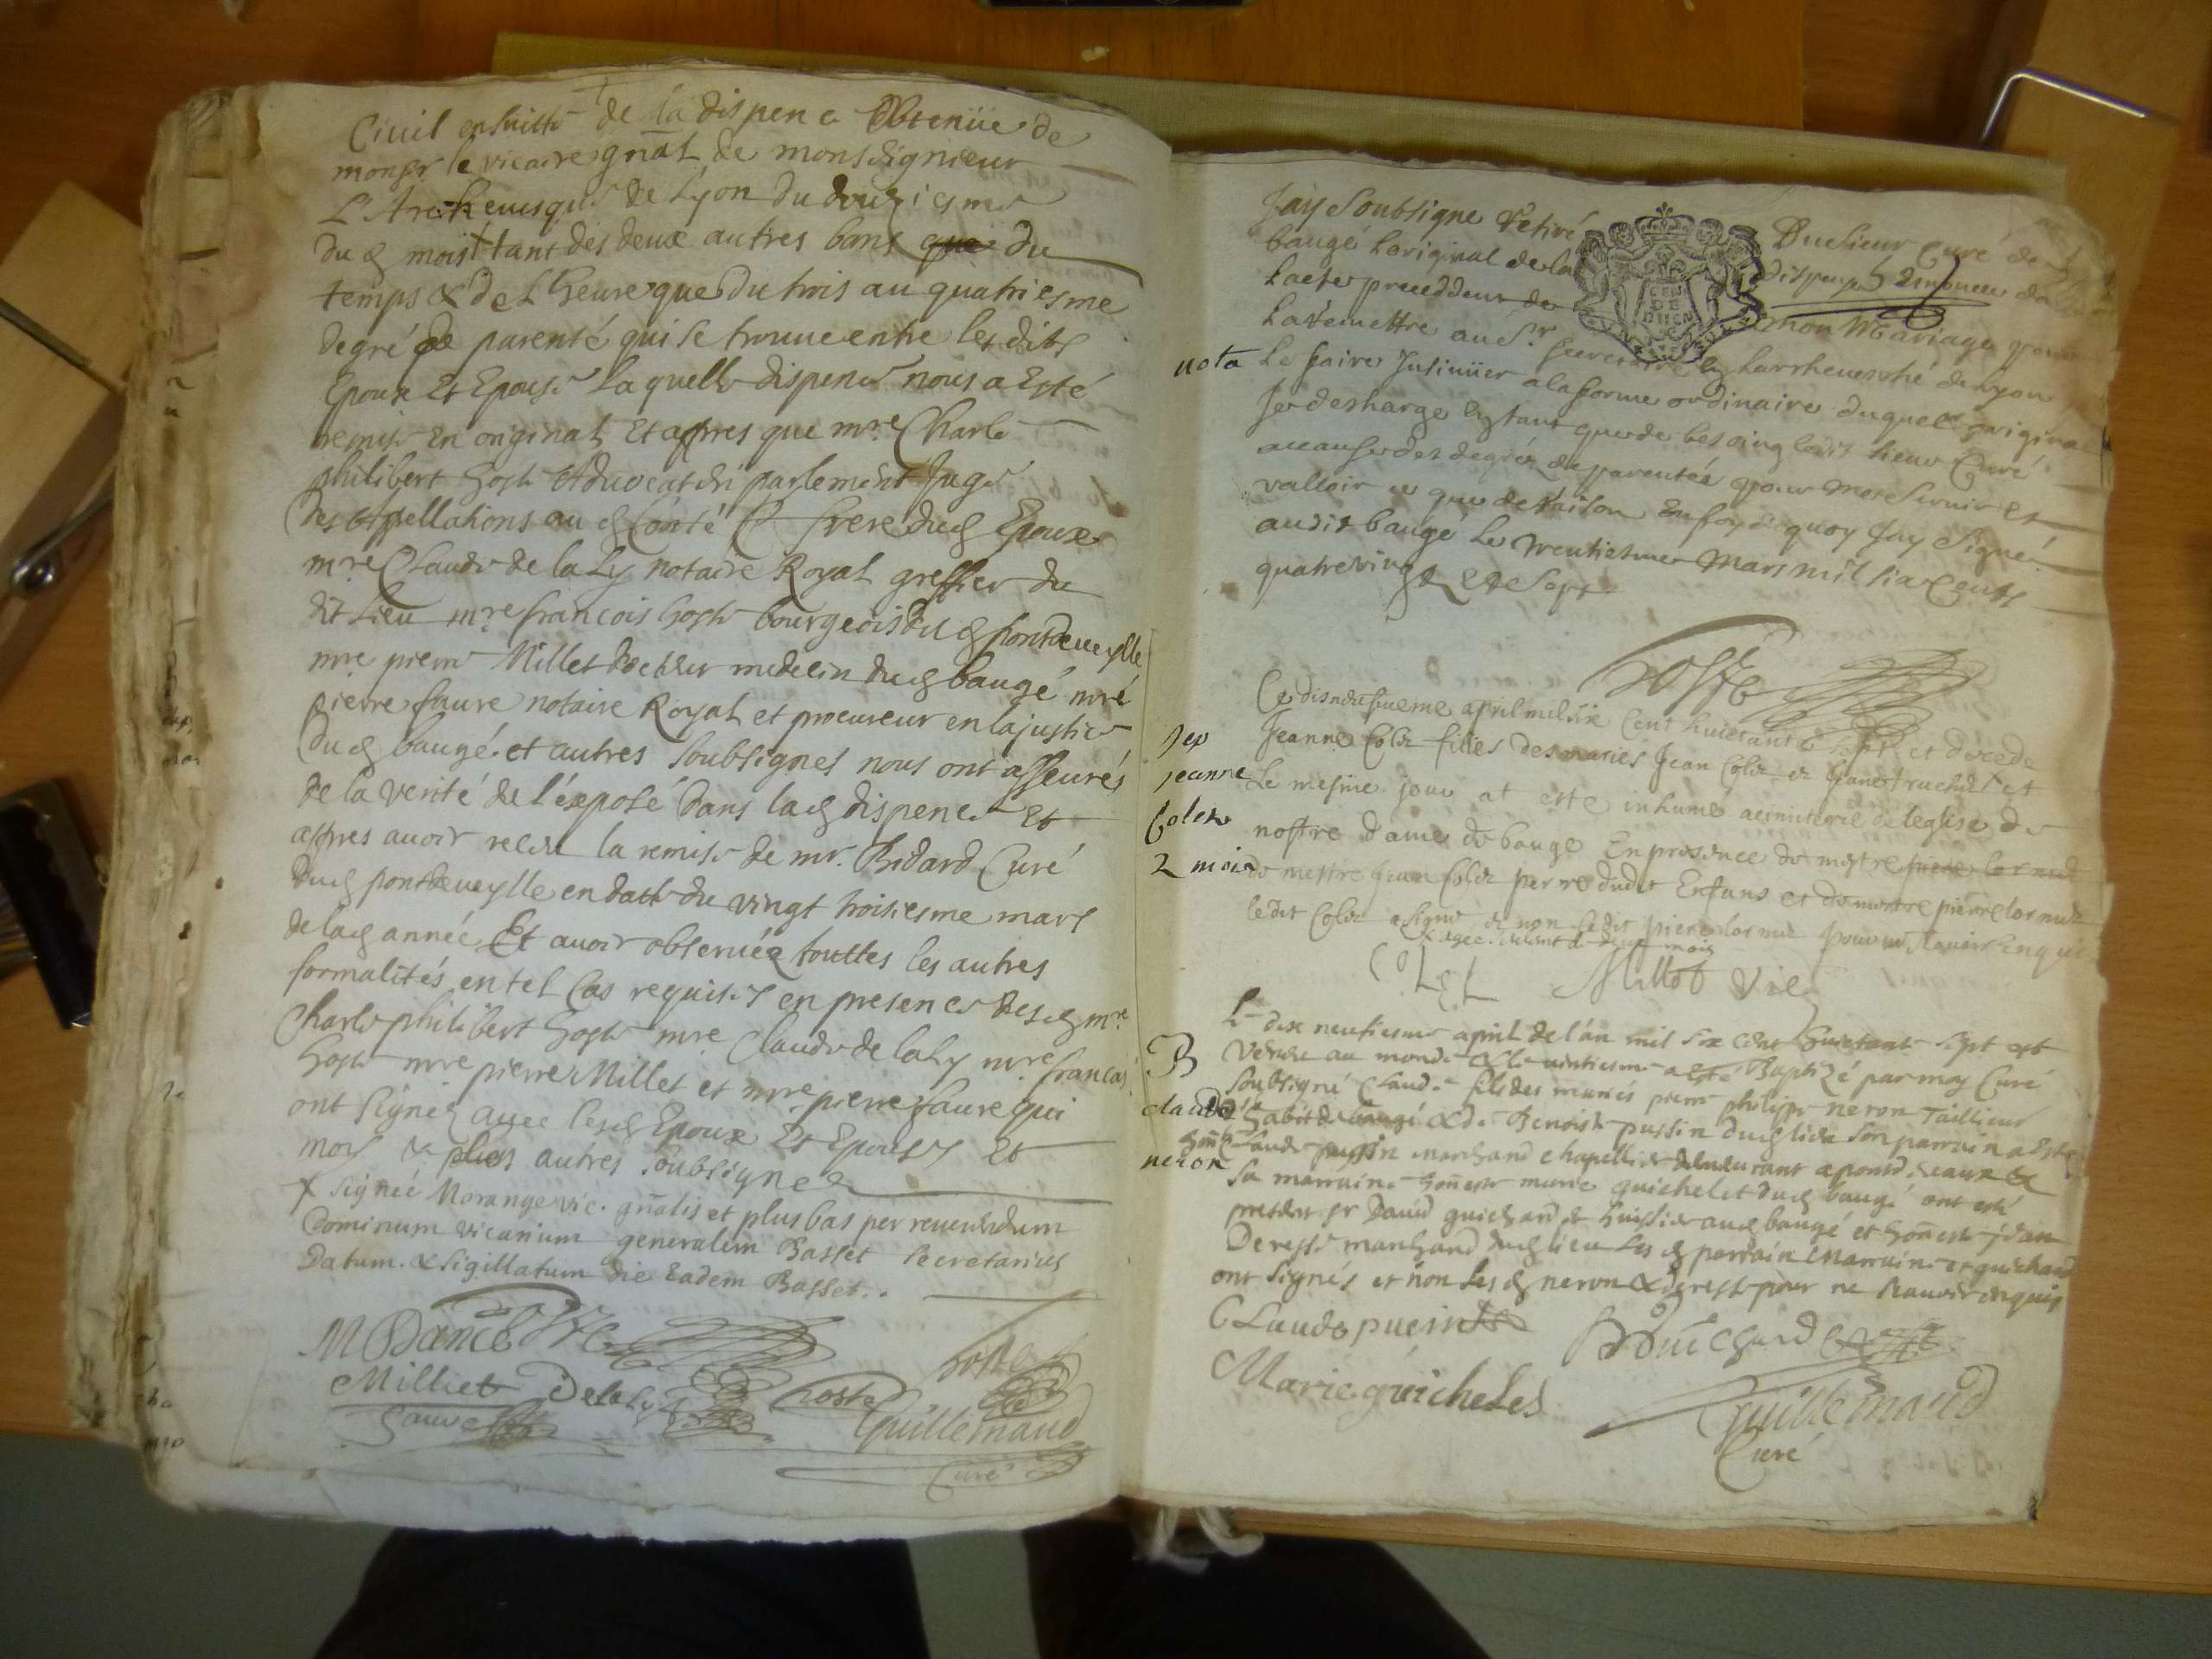 Civil ensuitte de la dispence obtenüe de
monsr le vicaire gñal de monseignieur
L'Archeuesque de Lyon du douziesme
du d mois tant des deux autres bans que du
temps & de L'heure que du trois au quatriesme
degré de parenté qui se trouue entre lesdits
Epoux Et Epouse Laquelle dispence nous a Esté
remise En original Et appres que mre Charle
philibert hoste Aduocat en parlement Juge
des appellations au d Conté frere dud Epoux
mre CLaude de laLy notaire Royal greffier du
dit Lieu mre francois hoste bourgeois du d pontdeueylle
mre pierre Millet docteur medecin dud baugé mre
pierre faure notaire Royal et procureur en la justice
dud baugé et autres soubsignes nous ont asseurés
de la verité de l'éxposé dans lad dispence Et
appres auoir receu la remise de mr. Bidard Curé
dud pontdeueylle en datte du vingt troisiesme mars
de lad année Et auoir obseruéz touttes les autres
formalités en tel Cas requises en presence desd mre
Charle philibert hoste mre Claude de laLy mre francois
hoste mre pierre Millet et mre pierre faure qui
ont signéz auec lesd Epoux Et Epouse Et
moy & plus autres soubsignez
X signée Morange vic. gñalis et plus bas per reuerendum
Dominum vicarium generalem Basset secretarius
Datum & sigillatum die Eadem Basset..
M Dance hoste
hoste
Milliet DelaLy hoste
faure Guillemaud
Curé
Jay Soubsigne Retiré Du sieur Curé de
baugé Loriginal de la dispense enoncee da
Lacte precedent de mon Mariage pour
La remettre au Sr secretaire de Larcheuesché de Lyon
nota Le faire Insinüer a la forme ordinaire duquel origina
Je descharge En tant que de besoing ledit sieur Curé
a cause des degréz de parentéz pour me seruir et
valloir ce que de Raison En foy de quoy Jay signé
audit baugé Le trentiesme Mars mil six Cents
quatre vingt Et Sept
hoste
Ce disneufieme april mil six Cent huictante sept et décede
Sep Jeanne Colet filies des maries Jean Colet et
jeanne Le mesme jour at este inhumé au cimitiere de leglise de
Colet nostre dame de bauge En presence de mestre
2 mois de mestre Jean Colet perre dudit Enfans et de mestre pierre
ledit Colet a signe et non ledit pierre pour ne scauoir Enquis
agee mois
CoLeL Millot Vic
Le dix neufiesme april de l'an mil six cent huictante sept est
B Venüe au monde & le vintiesme a esté Baptizé par moy Curé
soubsigné Claude fils des mariés pierre philippe neron Taillieur
claude habit de baugé & de Benoiste pussin dud lieu son parrain a esté
honte Claude pussin marchand chapellier demeurant a pontdeuaux &
neron sa marraine honneste marie guichelet dud baugé ont esté
present sr Dauid guichard huissier aud baugé et honneste jean
Deresse marchand dud lieu Les d parrain Marraine et guichard
ont signés et non Les d neron & deresse pour ne scauoir enquis
CLaude puesin DGuichard
Marie guicheles Guillemaud
Curé